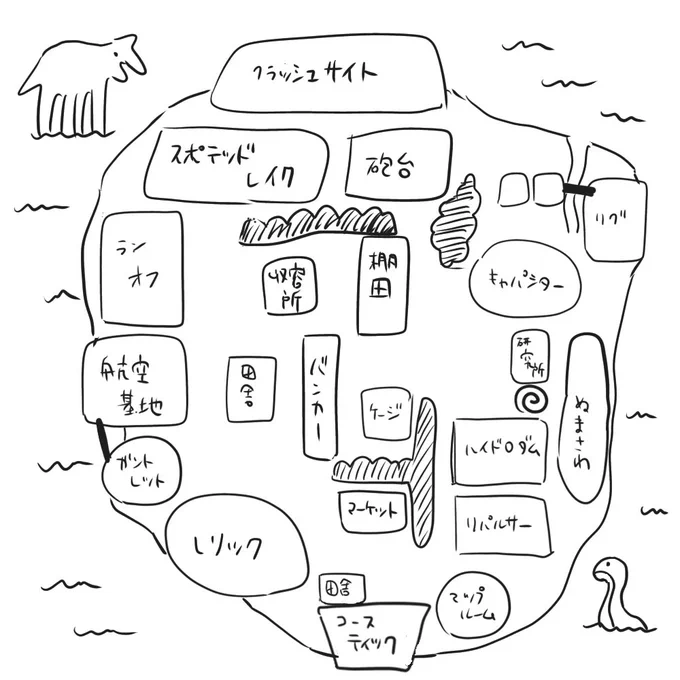 クラッシュサイト
スポテッド
レイク
砲台
リグ
ラン
オフ
収容
所
棚
田
キャパシター
航空
基地
田
舎
バンカー
ケージ
研
究所
ぬまさわ
ガント
レット
ハイドロダム
マーケット
リパルサー
レリック
田舎
コース
ティック
マップ
ルーム